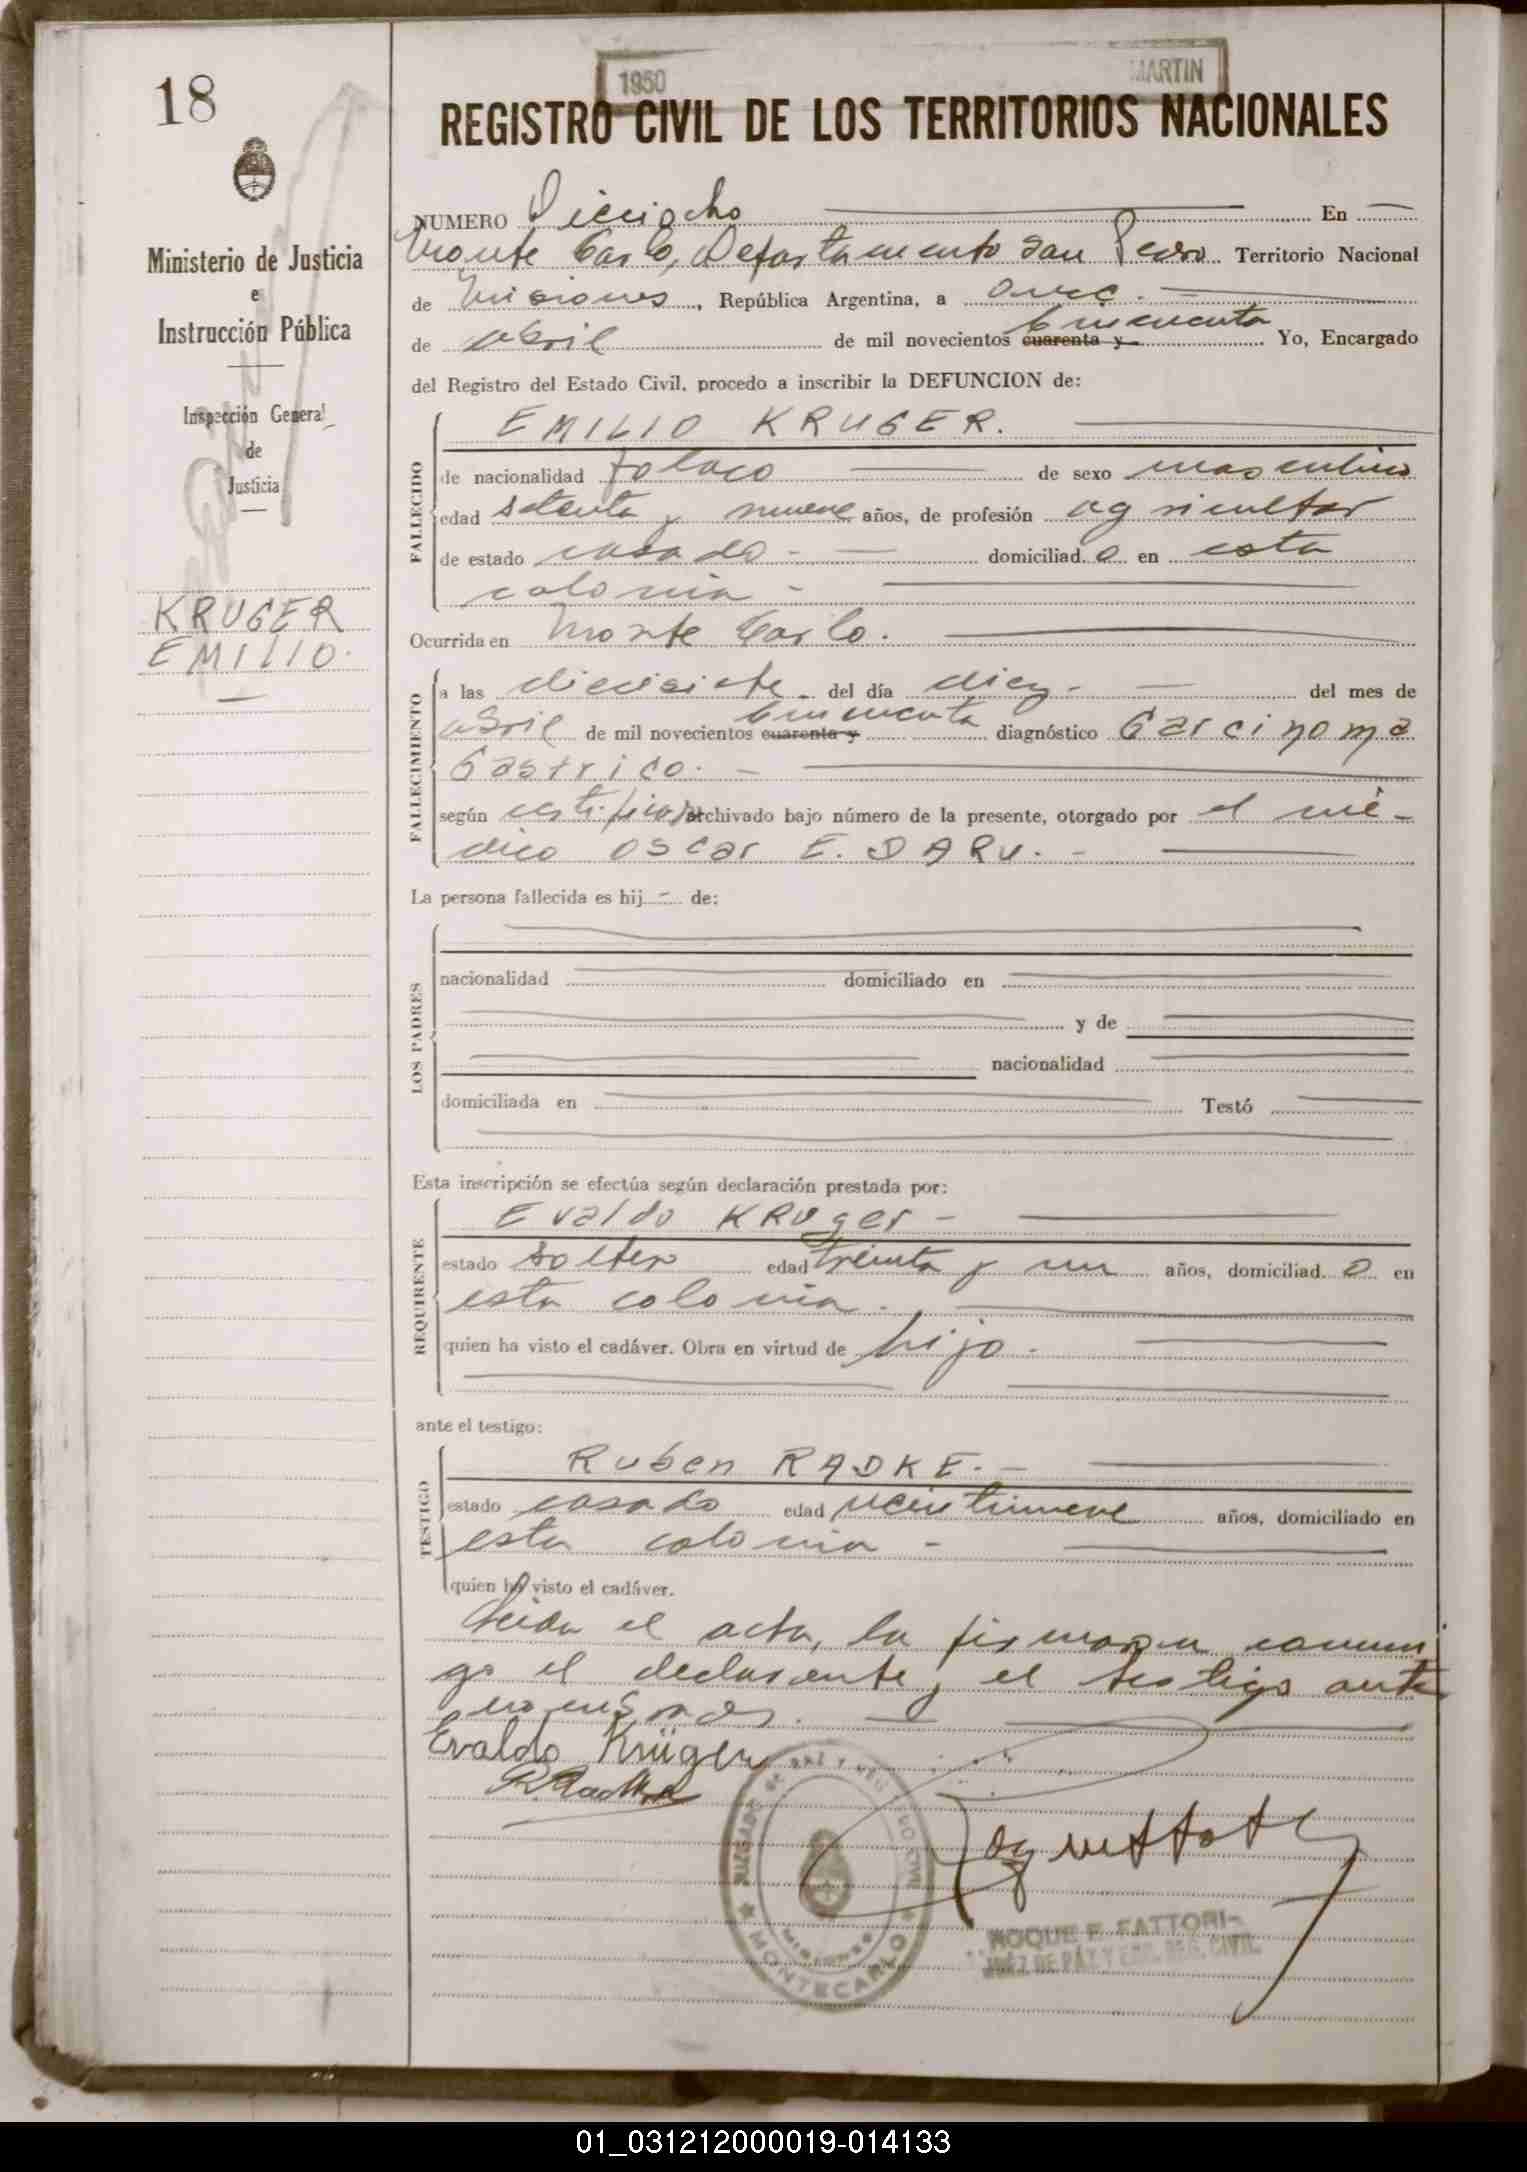 18
1950 MARTIN
REGISTRO CIVIL DE LOS TERRITORIOS NACIONALES
Ministerio de Justicia
e
Instrucción Pública
Inspección General
de
Justicia
KRUGER
EMILIO.
NUMERO Dieciocho En
Monte Carlo, Departamento San Pedro Territorio Nacional
de Misiones, República Argentina, a once.
de abril de mil novecientos cuarenta y cincuenta Yo, Encargado
del Registro del Estado Civil, procedo a inscribir la DEFUNCION de:
FALLECIDO
EMILIO KRUGER.
de nacionalidad polaco de sexo masculino
edad setenta y nueve años, de profesión agricultor
de estado casado - domiciliad o en esta
colonia -
Ocurrida en Monte Carlo.
FALLECIMIENTO
a las diecisiete del día diez - del mes de
abril de mil novecientos cuarenta y cincuenta diagnóstico Carcinoma
Gastrico. -
según certificado archivado bajo número de la presente, otorgado por el mé-
dico Oscar E. DARU. -
La persona fallecida es hij - de:
LOS PADRES
nacionalidad domiciliado en
y de
nacionalidad
domiciliada en Testó
Esta inscripción se efectúa según declaración prestada por:
REQUIRENTE
Evaldo KRUger -
estado soltero edad treinta y un años, domiciliad o en
esta colonia.
quien ha visto el cadáver. Obra en virtud de hijo -
ante el testigo:
TESTIGO
Ruben RADKE. -
estado casado edad veintinueve años, domiciliado en
esta colonia -
quien ha visto el cadáver.
Leida el acta, la firmaron conmi
go el declarante y el testigo ante
nombrados.
Evaldo Krüger
R. Radke
JUZGADO DE PAZ Y REGISTRO CIVIL
MISIONES
MONTECARLO
ROQUE F. FATTORI
JUEZ DE PAZ Y ENC. REG. CIVIL
01_031212000019-014133